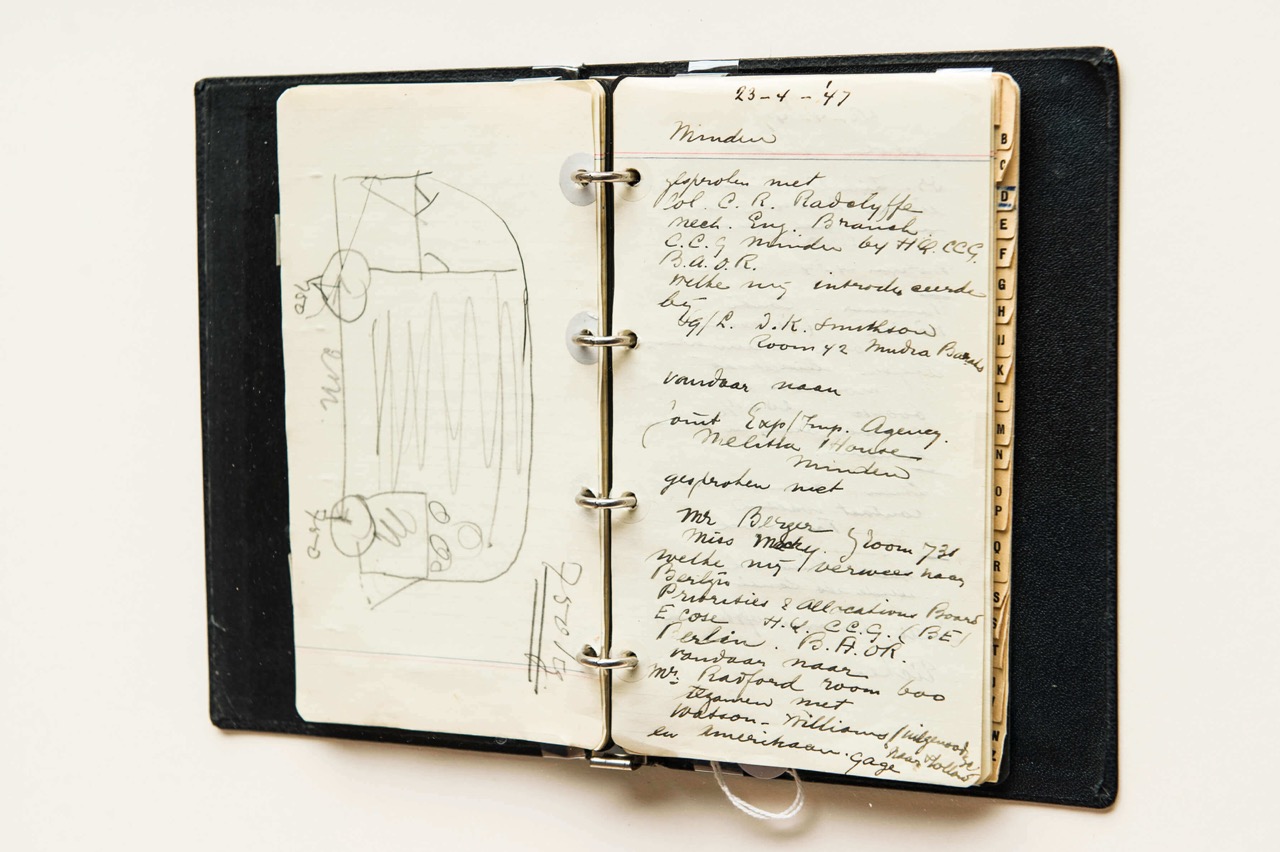 750
750
2500 kg
23-4-'47
Minden
gesproken met
Col. C. R. Radclyffe
Mech. Eng. Branch
C.C.G Minden by H.Q. CCG.
B.A.O.R.
welke mij introduceerde
bij
Sq/L. D.K. Smithson
Room 42 Mudra Barracks
vandaar naar
joint Exp/Imp. Agency.
Melitta House
Minden
gesproken met
Mr Berger
Miss room 731
welke mij verwees naar
Berlijn
Priorities & Allocations Board
H.Q. C.C.G. (BE)
Berlin. B.A.O.R.
vandaar naar
Mr. Radford room 600
tezamen met
Watson-Williams
en Amerikaan. Gage
B
C
D
E
F
G
H
IJ
K
L
M
N
O
P
Q
R
S
T